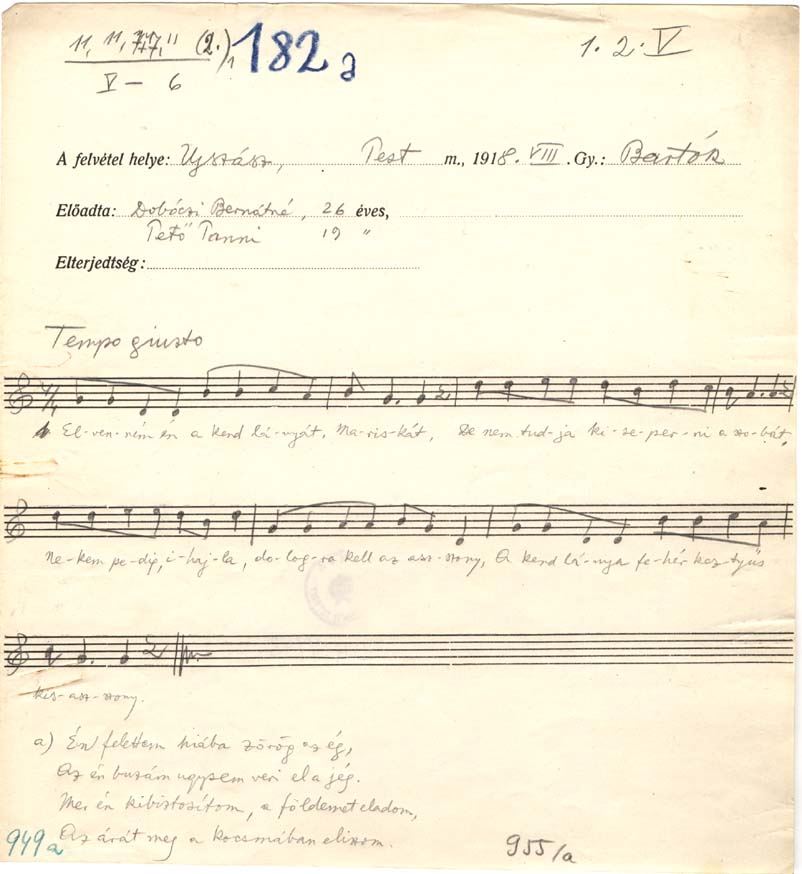 11, 11, 11, 11 (2.), 182a 1. 2. V
V – 6
A felvétel helye: Ujszász, Pest m., 1918. VIII. Gy.: Bartók
Előadta: Dobóczi Bernátné, 26 éves,
Pető Panni 19 "
Elterjedtség:
Tempo giusto
El-ven-ném én a kend lá-nyát, Ma-ris-kát, De nem tud-ja ki-se-per-ni a szo-bát,
Ne-kem pe-dig, i-haj-la, do-log-ra kell az asz-szony, A kend lá-nya fe-hér kez-tyüs
kis-asz-szony.
a) Én felettem hiába zörög az ég,
Az én buzám ugysem veri el a jég.
Mer én kibistosítom, a földemet eladom,
Az árát meg a kocsmában eliszom.
949a 955/a